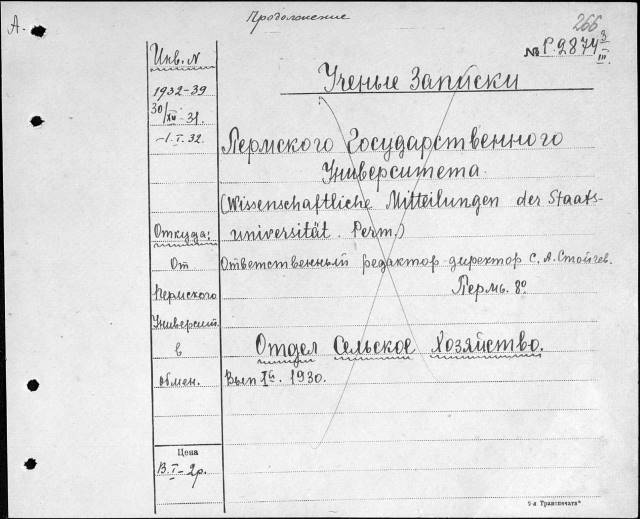 А.
Продолжение
266
№ Р.2874 3/III
Инв. N
Ученые Записки
1932-39
30/XII-31.
-1.I.32.
Пермского Государственного
Университета.
(Wissenschaftliche Mitteilungen der Staats-
universität. Perm.)
Откуда:
От
Ответственный редактор-директор С. А. Стойчев.
Пермского
Пермь. 8°
Университ.
в
Отдел Сельское Хозяйство.
обмен.
Вып I й. 1930.
Цена
В.I-2р.
9-я Транспечать